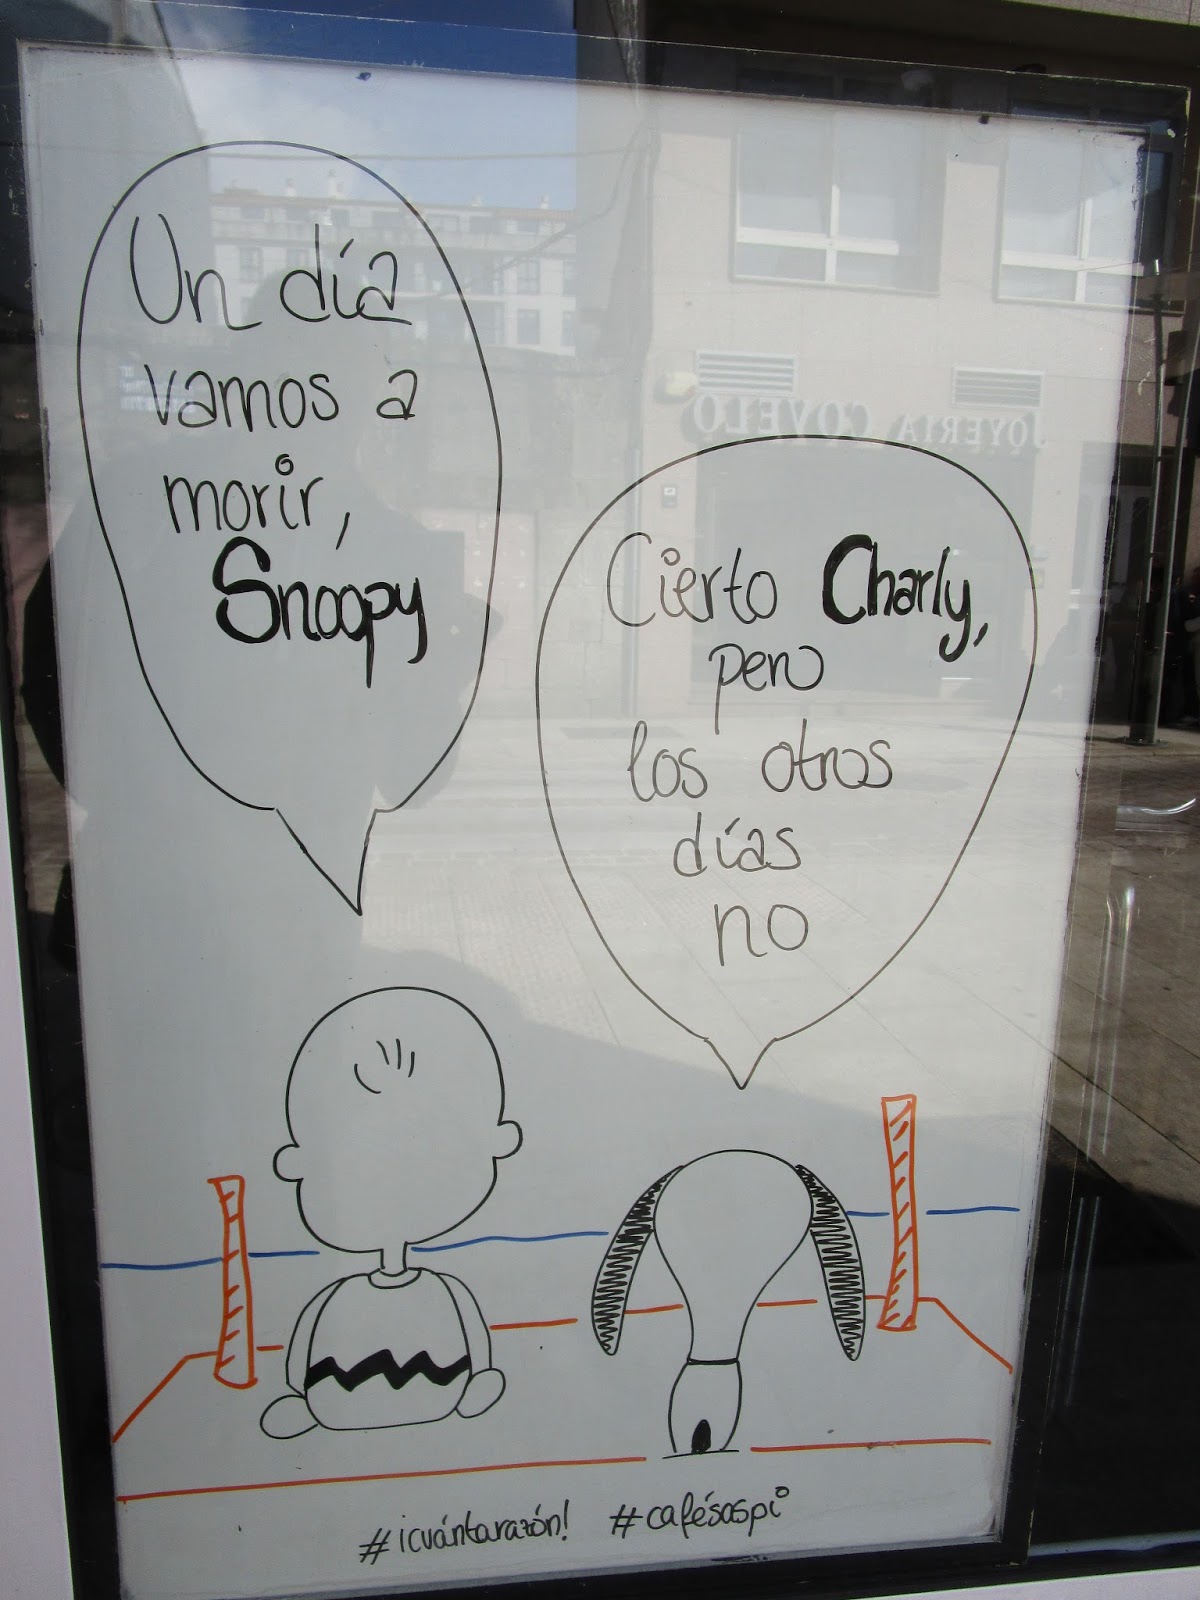 Un día
vamos a
morir,
Snoopy
Cierto Charly,
pero
los otros
días
no
JOYERIA COVELO
#¡cuántarazón! #cafésospi